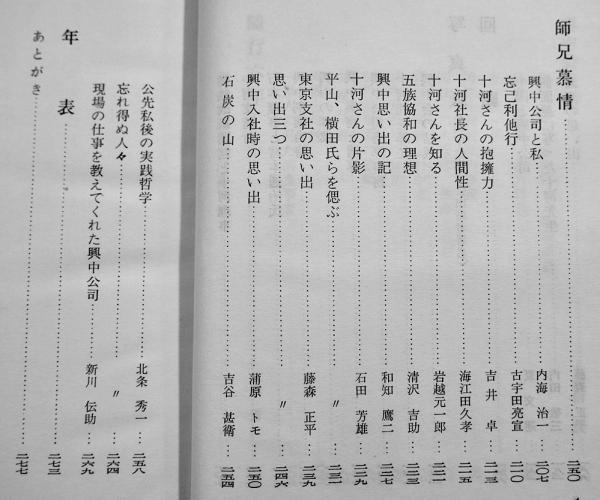 師兄慕情……二五〇
興中公司と私……内海 治一…二〇七
忘己利他行……古宇田亮宣…二一〇
十河さんの抱擁力……吉井 卓…二一三
十河社長の人間性……海江田久孝…二一五
十河さんを知る……岩越元一郎…二二一
五族協和の理想……清沢 吉助…二二三
興中思い出の記……和知 鷹二…
十河さんの片影……石田 芳雄…二二九
平山、横田氏らを偲ぶ……〃…二三一
東京支社の思い出……藤森 正平…二三九
思い出三つ……〃…二四六
興中入社時の思い出……蒲原 トモ…二五〇
石炭の山……吉谷 甚衛…二五四
公先私後の実践哲学……北条 秀一…二五八
忘れ得ぬ人々……〃…二六四
現場の仕事を教えてくれた興中公司……新川 伝助…二六九
年表……二七三
あとがき……二七七